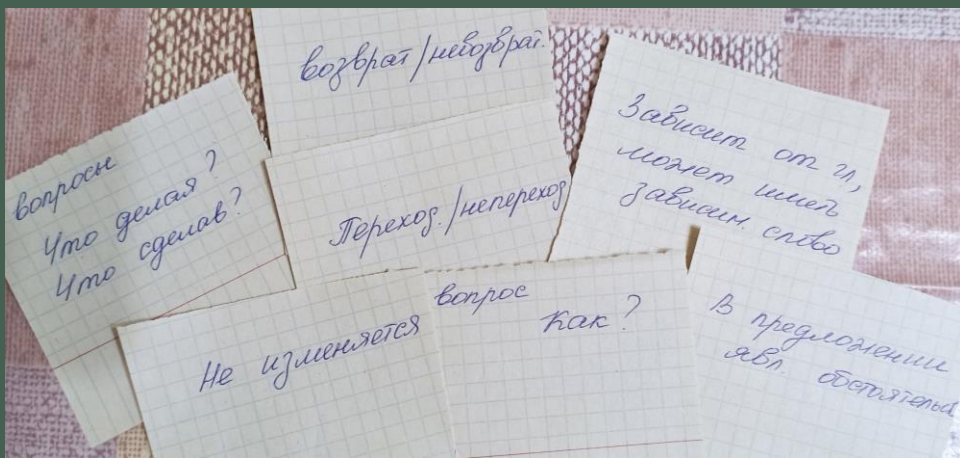 возврат/невозврат.
вопросы
Что делая?
Что сделав?
Переход./непереход
Зависит от гл,
может иметь
зависим. слово
Не изменяется
вопрос
Как?
В предложении
явл. обстоятельс